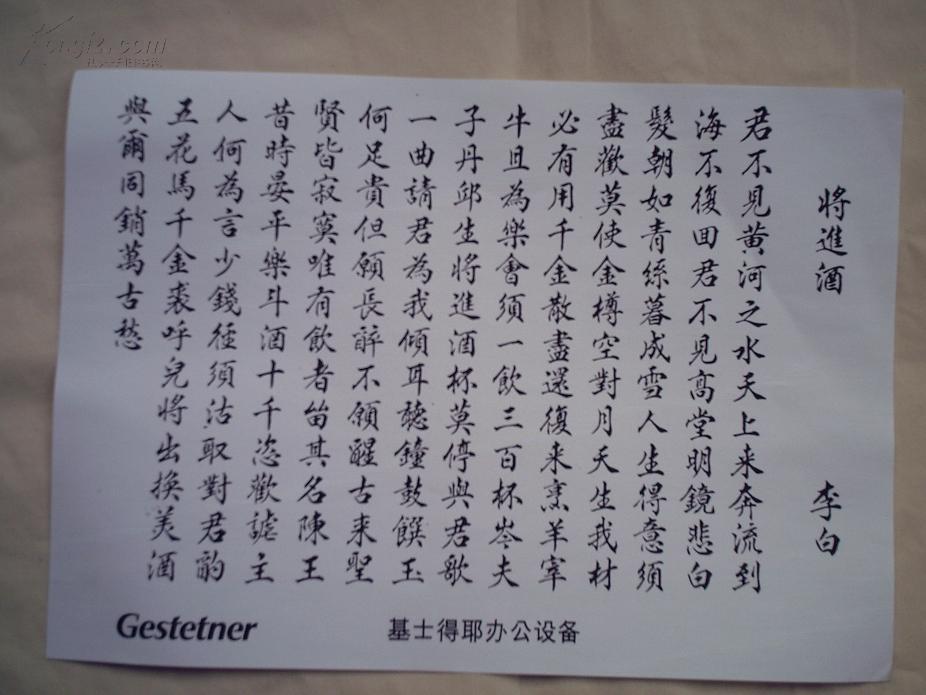 將進酒 李白
君不見黄河之水天上来奔流到
海不復回君不見高堂明鏡悲白
髮朝如青絲暮成雪人生得意須
盡歡莫使金樽空對月天生我材
必有用千金散盡還復来烹羊宰
牛且為樂會須一飲三百杯岑夫
子丹邱生將進酒杯莫停與君歌
一曲請君為我傾耳聽鐘鼓饌玉
何足貴但願長醉不願醒古来聖
賢皆寂寞唯有飲者留其名陳王
昔時宴平樂斗酒十千恣歡謔主
人何為言少錢径須沽取對君酌
五花馬千金裘呼兒將出換美酒
與爾同銷萬古愁
Gestetner 基士得耶办公设备
Kongfz.com